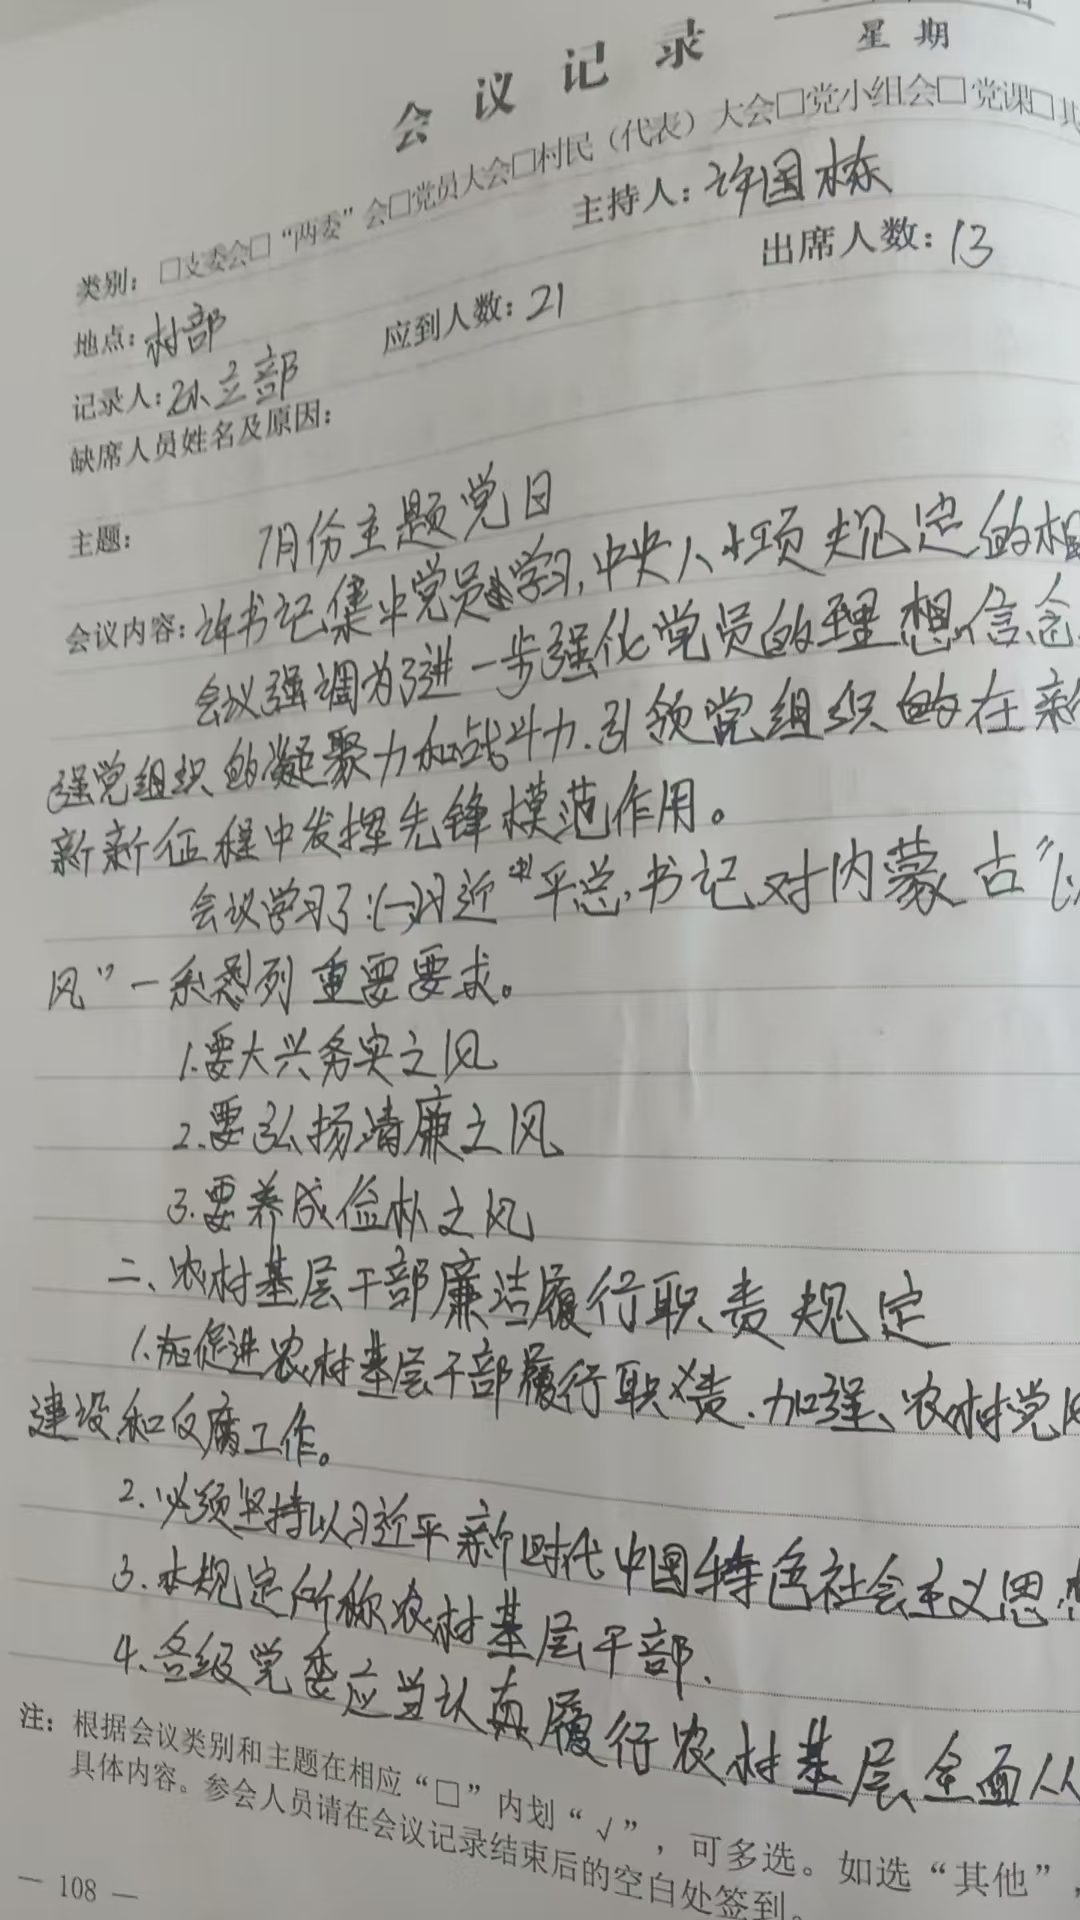 星 期
会 议 记 录
类别：□支委会□“两委”会□党员大会□村民（代表）大会□党小组会□党课□
地点：村部 主持人：许国栋
记录人：孙立部 应到人数：21 出席人数：13
缺席人员姓名及原因：
主题： 7月份主题党日
会议内容：许书记集中党员学习，中央八项规定的相
会议强调为了进一步强化党员的理想信念
强党组织的凝聚力和战斗力.引领党组织的在新
新新征程中发挥先锋模范作用。
会议学习了：(一)习近平总书记对内蒙古“
风”一系列重要要求。
1.要大兴务实之风
2.要弘扬清廉之风
3.要养成俭朴之风
二、农村基层干部廉洁履行职责规定
1.为促进农村基层干部履行职责.加强、农村党风
建设和反腐工作。
2.必须坚持以习近平新时代中国特色社会主义思想
3.本规定所称农村基层干部.
4.各级党委应当认真履行农村基层全面从
注：根据会议类别和主题在相应“□”内划“√”，可多选。如选“其他”，
具体内容。参会人员请在会议记录结束后的空白处签到。
— 108 —